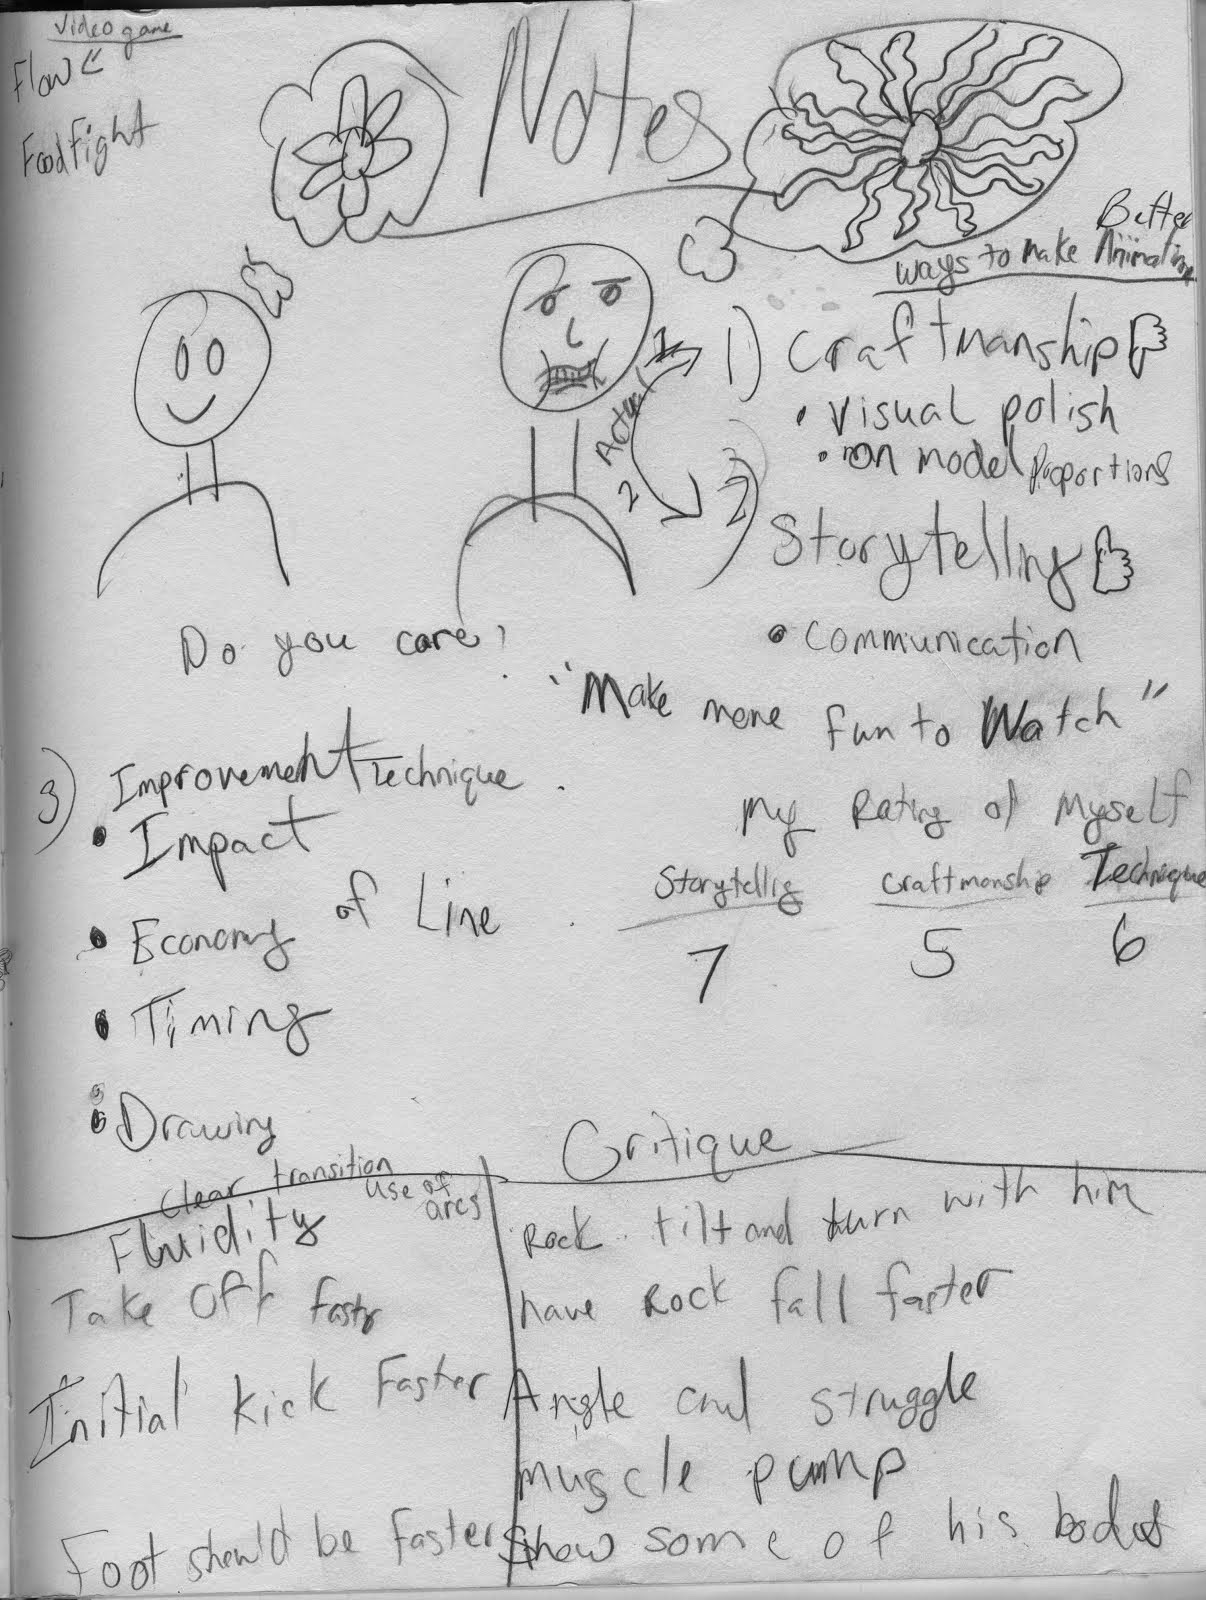 Video game
Flow
Food Fight
Notes
Better
ways to make Animation
1) Craftmanship
• visual polish
• on model Proportions
Actual
1
2
2) Storytelling
• Communication
Do you care?
"Make more fun to Watch"
3) Improvement Technique
• Impact
• Economy of Line
• Timing
• Drawing
My Rating of Myself
Storytellig Craftmonship Technique
7 5 6
Critique
Clear transition
use of
arcs
Fluidity
Take Off faster
Initial Kick Faster
Foot should be Faster
Rock tilt and turn with him
have Rock fall faster
Angle and struggle
muscle pump
Show some of his